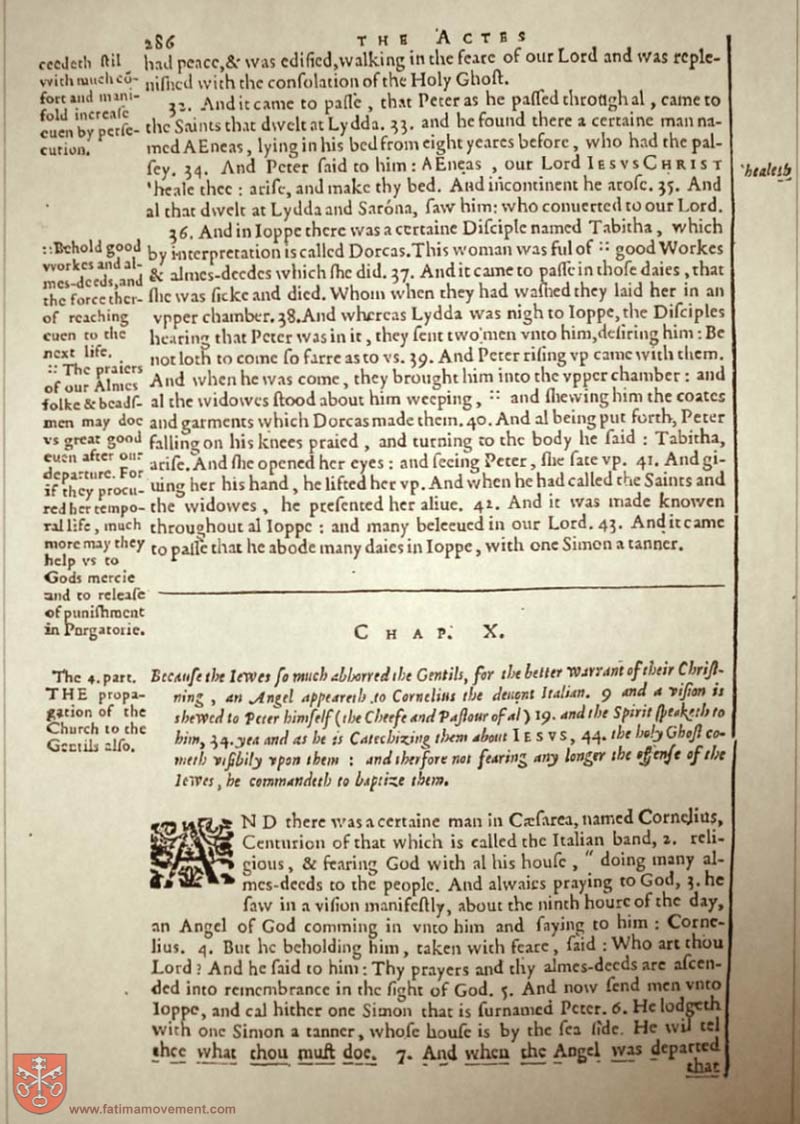 286
THE ACTES
ceedeth ſtil
with much cō-
fort and mani-
fold increaſe
euen by perſe-
cution.
had peace,& was edified,walking in the feare of our Lord and was reple-
niſhed with the conſolation of the Holy Ghoſt.
32. And it came to paſſe , that Peter as he paſſed through al , came to
the Saints that dwelt at Lydda. 33. and he found there a certaine man na-
med AEneas, lying in his bed from eight yeares before , who had the pal-
ſey. 34. And Peter ſaid to him : AEneas , our Lord IESVS CHRIST
'heale thee : ariſe, and make thy bed. And incontinent he aroſe. 35. And
al that dwelt at Lydda and Saróna, ſaw him: who conuerted to our Lord.
'healeth
36. And in Ioppe there was a certaine Diſciple named Tabitha , which
by interpretation is called Dorcas.This woman was ful of :: good Workes
& almes-deedes which ſhe did. 37. And it came to paſſe in thoſe daies , that
ſhe was ſicke and died. Whom when they had waſhed they laid her in an
vpper chamber. 38.And whereas Lydda was nigh to Ioppe, the Diſciples
hearing that Peter was in it , they ſent two men vnto him,deſiring him : Be
not loth to come ſo farre as to vs. 39. And Peter riſing vp came with them.
And when he was come , they brought him into the vpper chamber : and
al the widowes ſtood about him weeping , :: and ſhewing him the coates
and garments which Dorcas made them. 40. And al being put forth, Peter
falling on his knees praied , and turning to the body he ſaid : Tabitha,
ariſe. And ſhe opened her eyes : and ſeeing Peter, ſhe ſate vp. 41. And gi-
uing her his hand, he lifted her vp. And when he had called the Saints and
the widowes , he preſented her aliue. 42. And it was made knowen
throughout al Ioppe : and many beleeued in our Lord. 43. And it came
to paſſe that he abode many daies in Ioppe, with one Simon a tanner.
::Behold good
workes and al-
mes-deeds,and
the force ther-
of reaching
euen to the
next life.
:: The praiers
of our Almes
folke & beadſ-
men may doe
vs great good
euen after our
departure. For
if they procu-
red her tempo-
ral life , much
more may they
help vs to
Gods mercie
and to releaſe
of puniſhment
in Purgatorie.
CHAP. X.
The 4. part.
THE propa-
gation of the
Church to the
Gentils alſo.
Becauſe the Iewes ſo much abhorred the Gentils, for the better warrant of their Chriſt-
ning , an Angel appeareth to Cornelius the deuout Italian. 9 and a viſion is
shewed to Peter himſelf (the Cheefe and Paſtour of al) 19. and the Spirit ſpeaketh to
him, 34. yea and as he is Catechizing them about IESVS, 44. the holy Ghoſt co-
meth viſibily vpon them : and therfore not fearing any longer the offenſe of the
Iewes, he commandeth to baptize them.
AND there was a certaine man in Cæſarea, named Cornelius,
Centurion of that which is called the Italian band, 2. reli-
gious, & fearing God with al his houſe , " doing many al-
mes-deeds to the people. And alwaies praying to God, 3. he
ſaw in a viſion manifeſtly, about the ninth houre of the day,
an Angel of God comming in vnto him and ſaying to him : Corne-
lius. 4. But he beholding him, taken with feare, ſaid : Who art thou
Lord? And he ſaid to him: Thy prayers and thy almes-deeds are aſcen-
ded into remembrance in the ſight of God. 5. And now ſend men vnto
Ioppe, and cal hither one Simon that is ſurnamed Peter. 6. He lodgeth
with one Simon a tanner, whoſe houſe is by the ſea ſide. He wil tel
thee what thou muſt doe. 7. And when the Angel was departed
that
www.fatimamovement.com